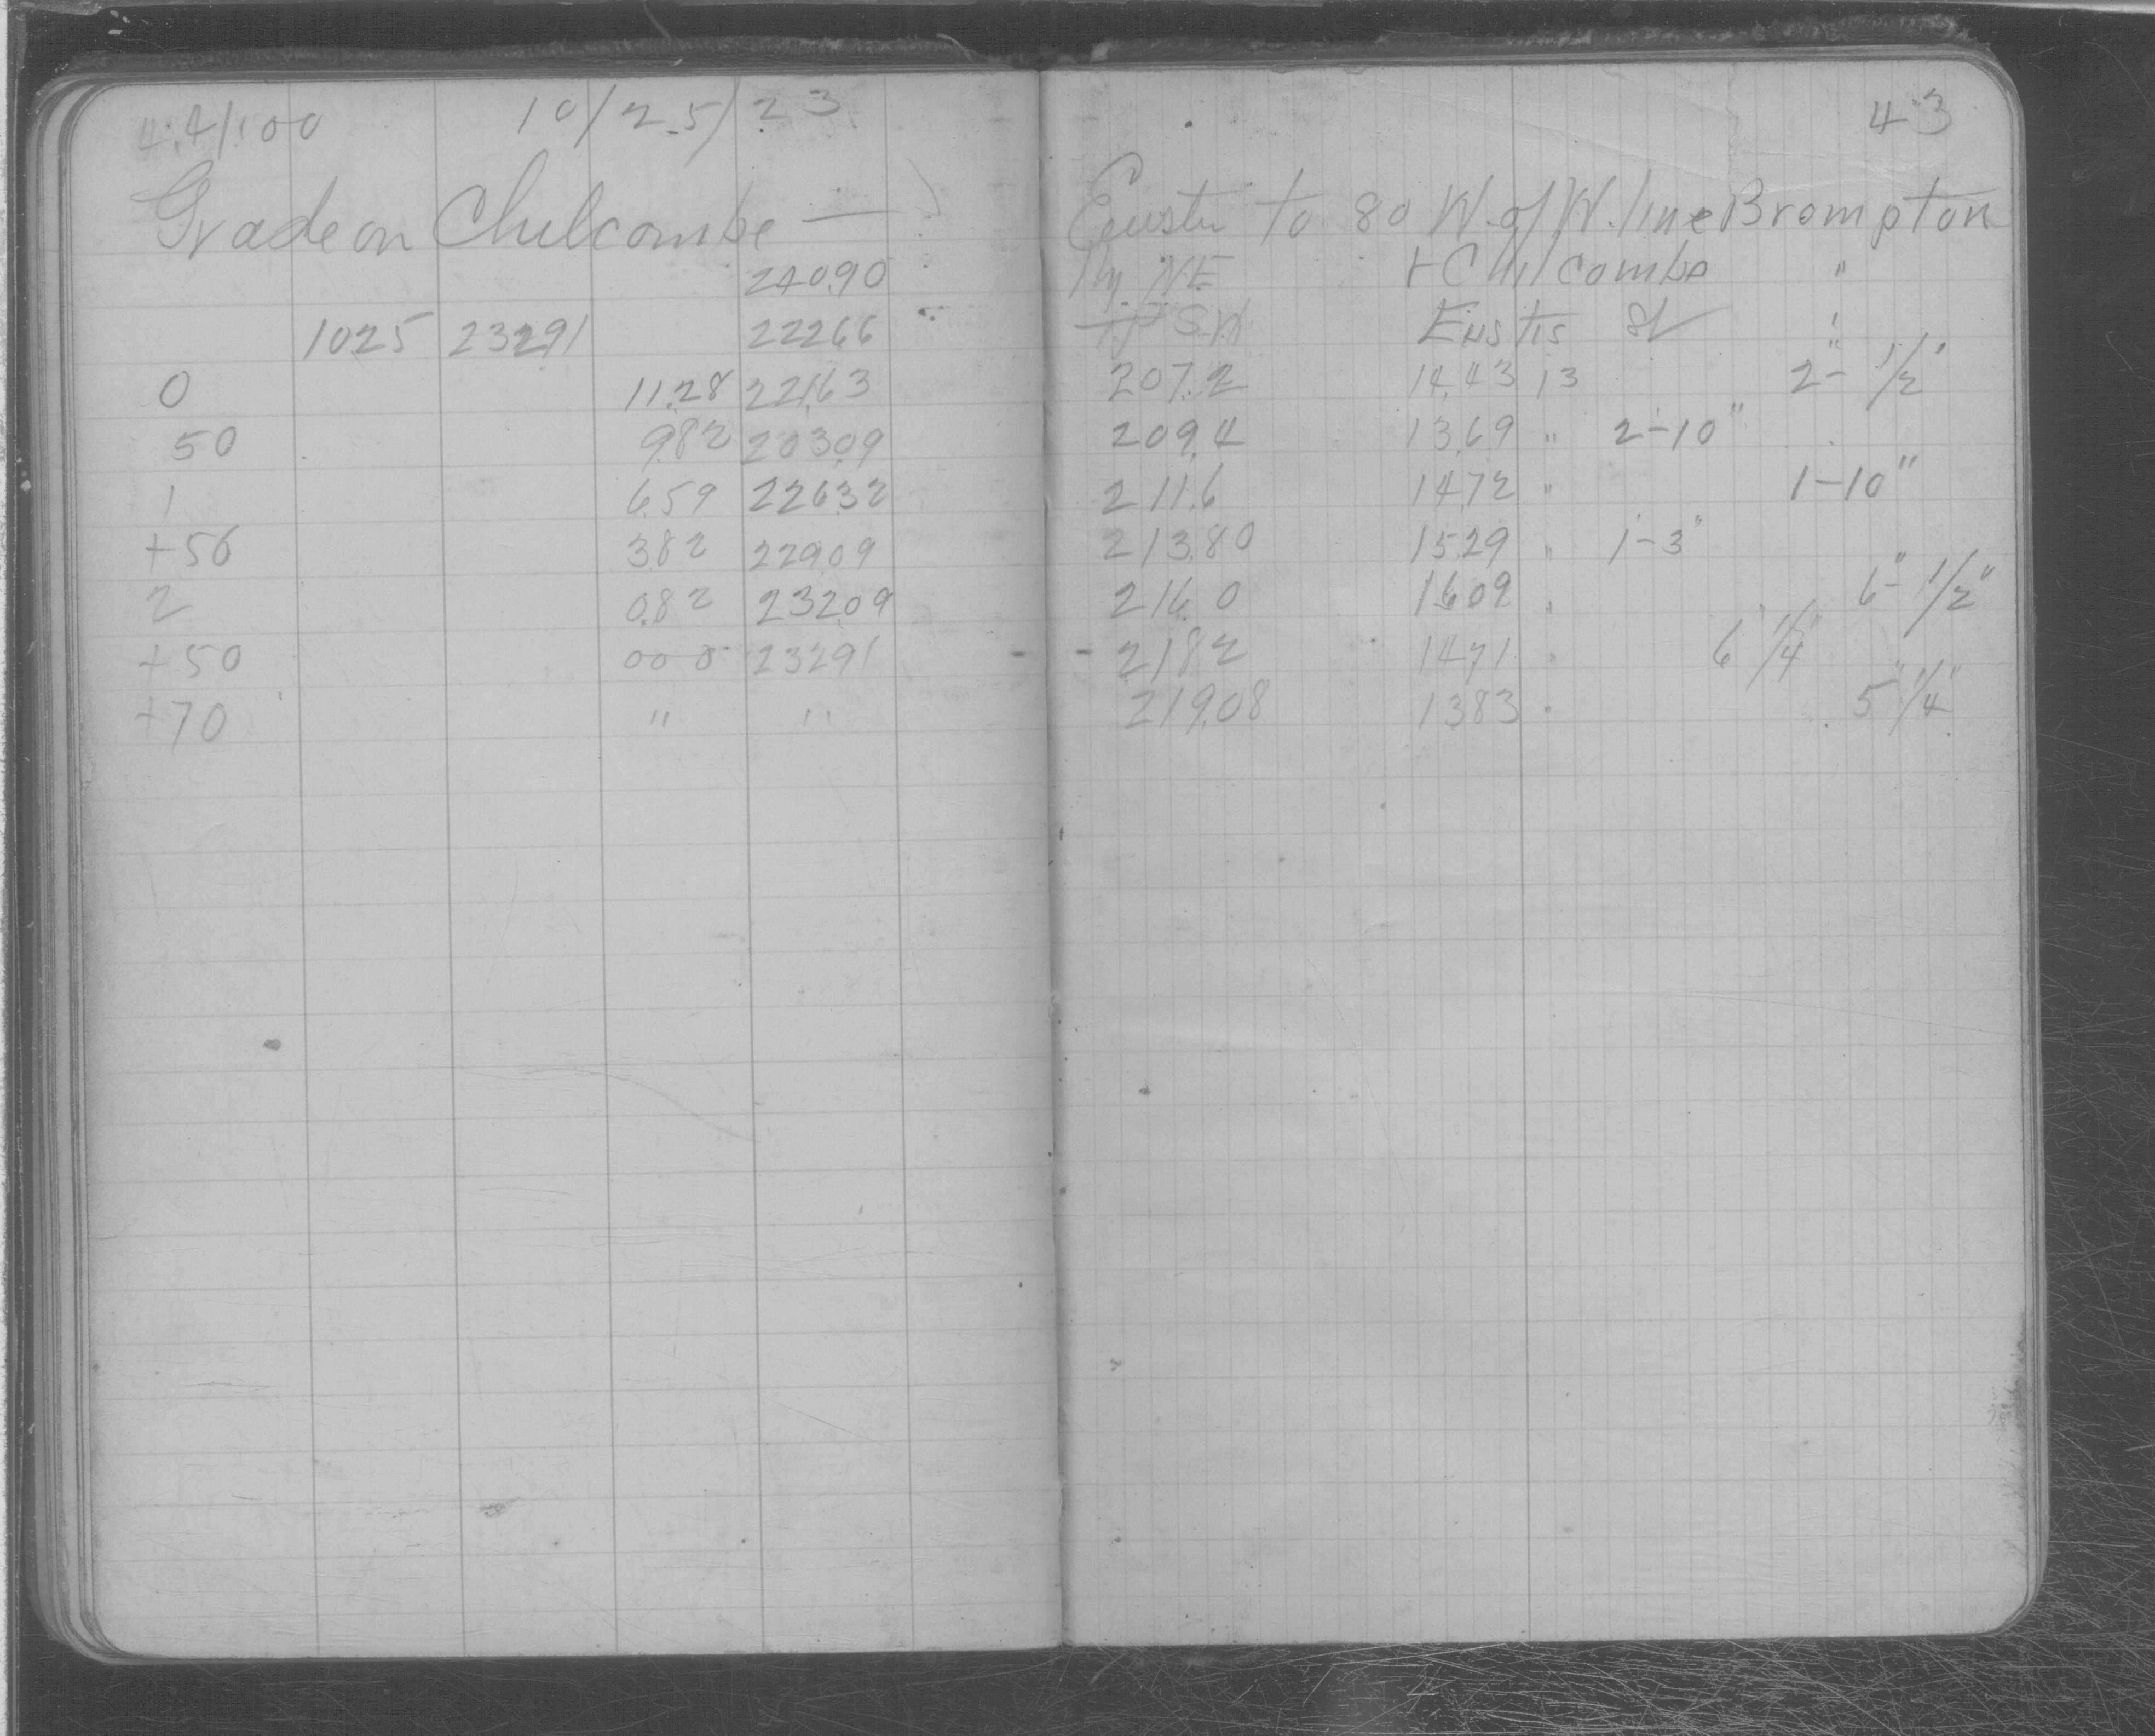 4.4/100 10/25/23
Grade on Chilcombe —
24090
1025 23291 22266
0 11.28 22163
50 982 20309
1 659 22632
+50 382 22909
2 082 23209
+50 000 23291
+70 " "
43
Eustis to 80 W. of W. line Brompton
N.E + Chilcombe "
T.P S.W Eustis St "
207.2 14.43 13 2- 1/2"
209.4 13.69 " 2-10"
211.6 1472 " 1-10"
213.80 1529 " 1-3"
216.0 1609 " 6- 1/2"
- 2182 1471 " 6 1/4"
219.08 1383 " 5 1/4"